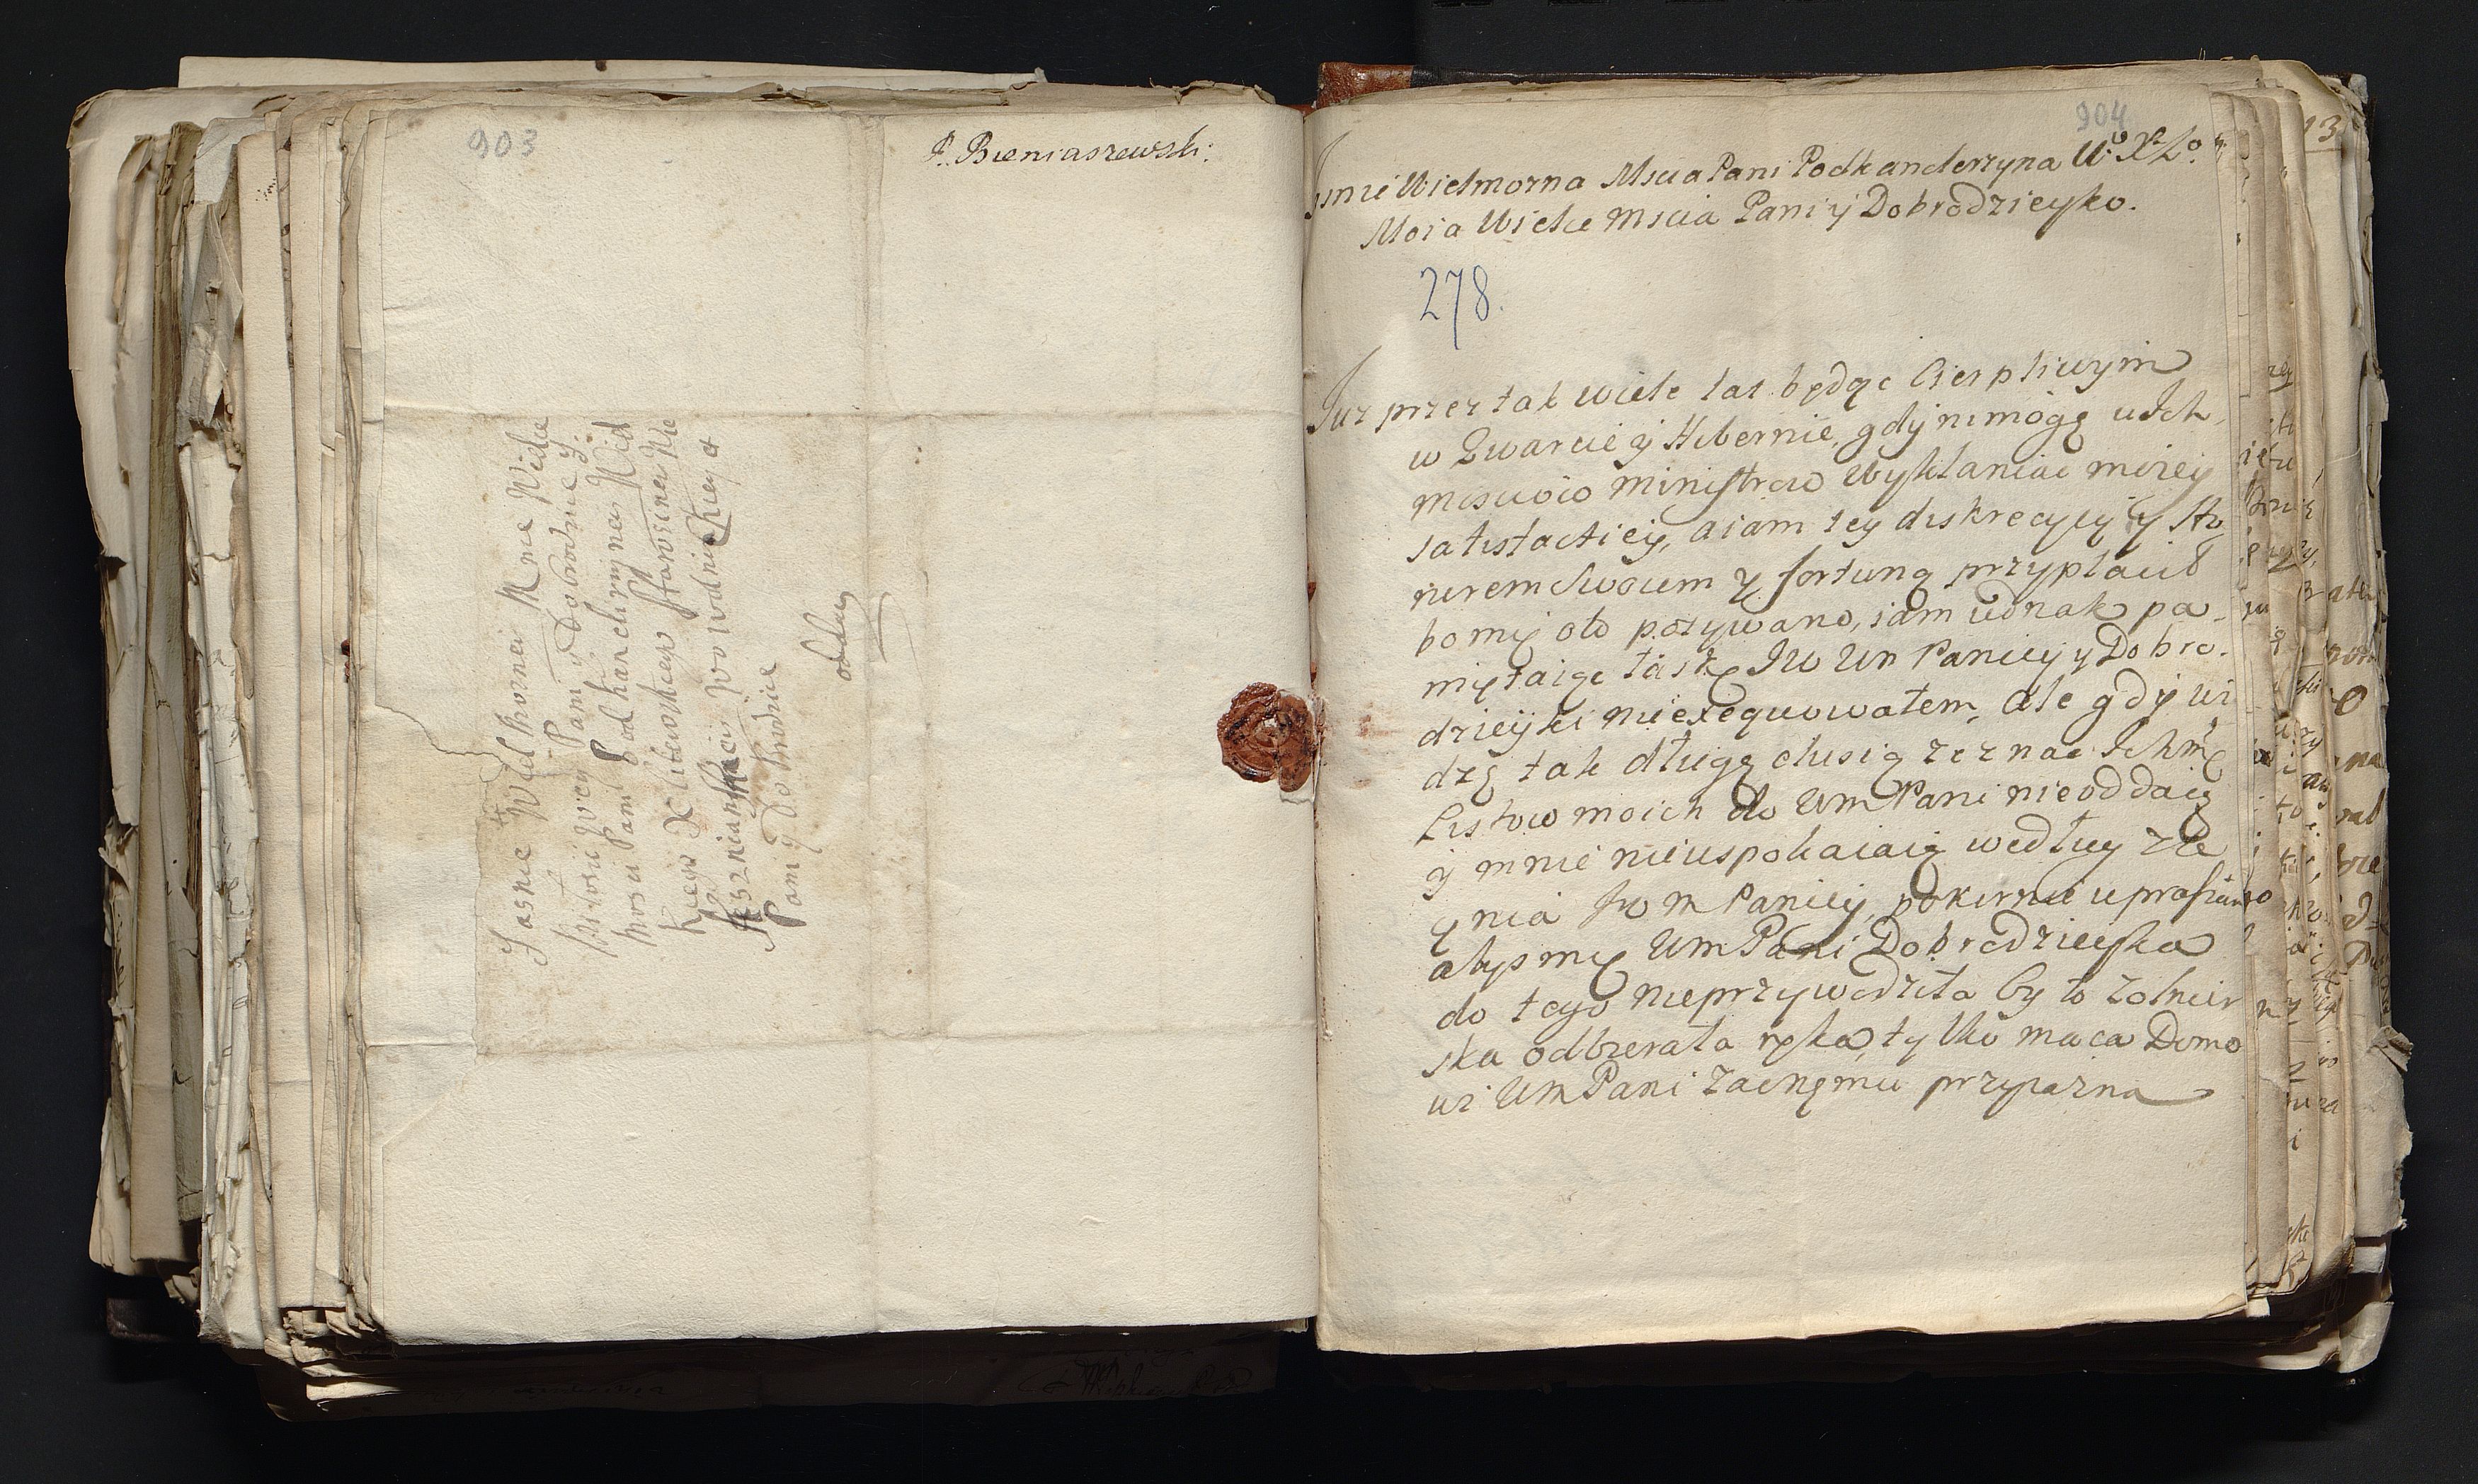 903
P. Bieniaszewski.
Jasnie Wielmoznei Mnie Wielce
Miłosciwey Paniy Dobrodzieyce
Mosci Pani Podkanclerzynei Wiel
kiego X Litewskiego Starosciney Mie
Pani y Dobrodzice
oddac
904
Jasnie Wielmozna Mscia Pani Podkanclerzyna W. X. L.
Moia Wielce Mscia Pani y Dobrodzieyko.
278.
Juz przez tak wiele lat będąc Cierpliwym
w Zwarcie y Hibernie, gdy nimogę u Ich
mosciow ministrow Wykłaniac moiey
satisfactiey, aiam tey diskrecyiy y Ho
norem Swoiem y fortuną przypłacił
bo mię oto pozywano, iam iednak pa-
miętaiąc łaskę JW Wm Paniey y Dobro-
dzieyki nieexequowałem, ale gdy wi
dzę tak długą elusią ze znac Ichmę
Listow moich do Wm Pani nieoddaią
y mnie nieuspokaiaią według zle
ęnia Jw m Paniey, pokirnie uprasiam
abys mię Wm Pani Dobrodzieyka
do tego nieprzywodziła by to zolnier
ska odbierała ręka, tylko maca Domo
wi Wm Pani zacnęmu przyiazna